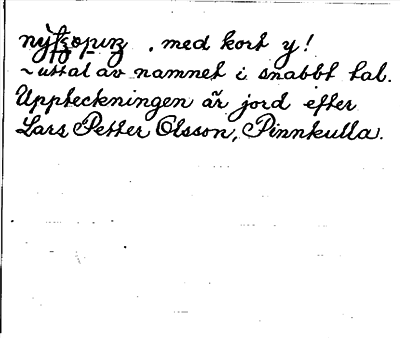 , med kort y!
~ uttal av namnet i snabbt tal.
Uppteckningen är jord efter
Lars Petter Olsson, Pinnkulla.